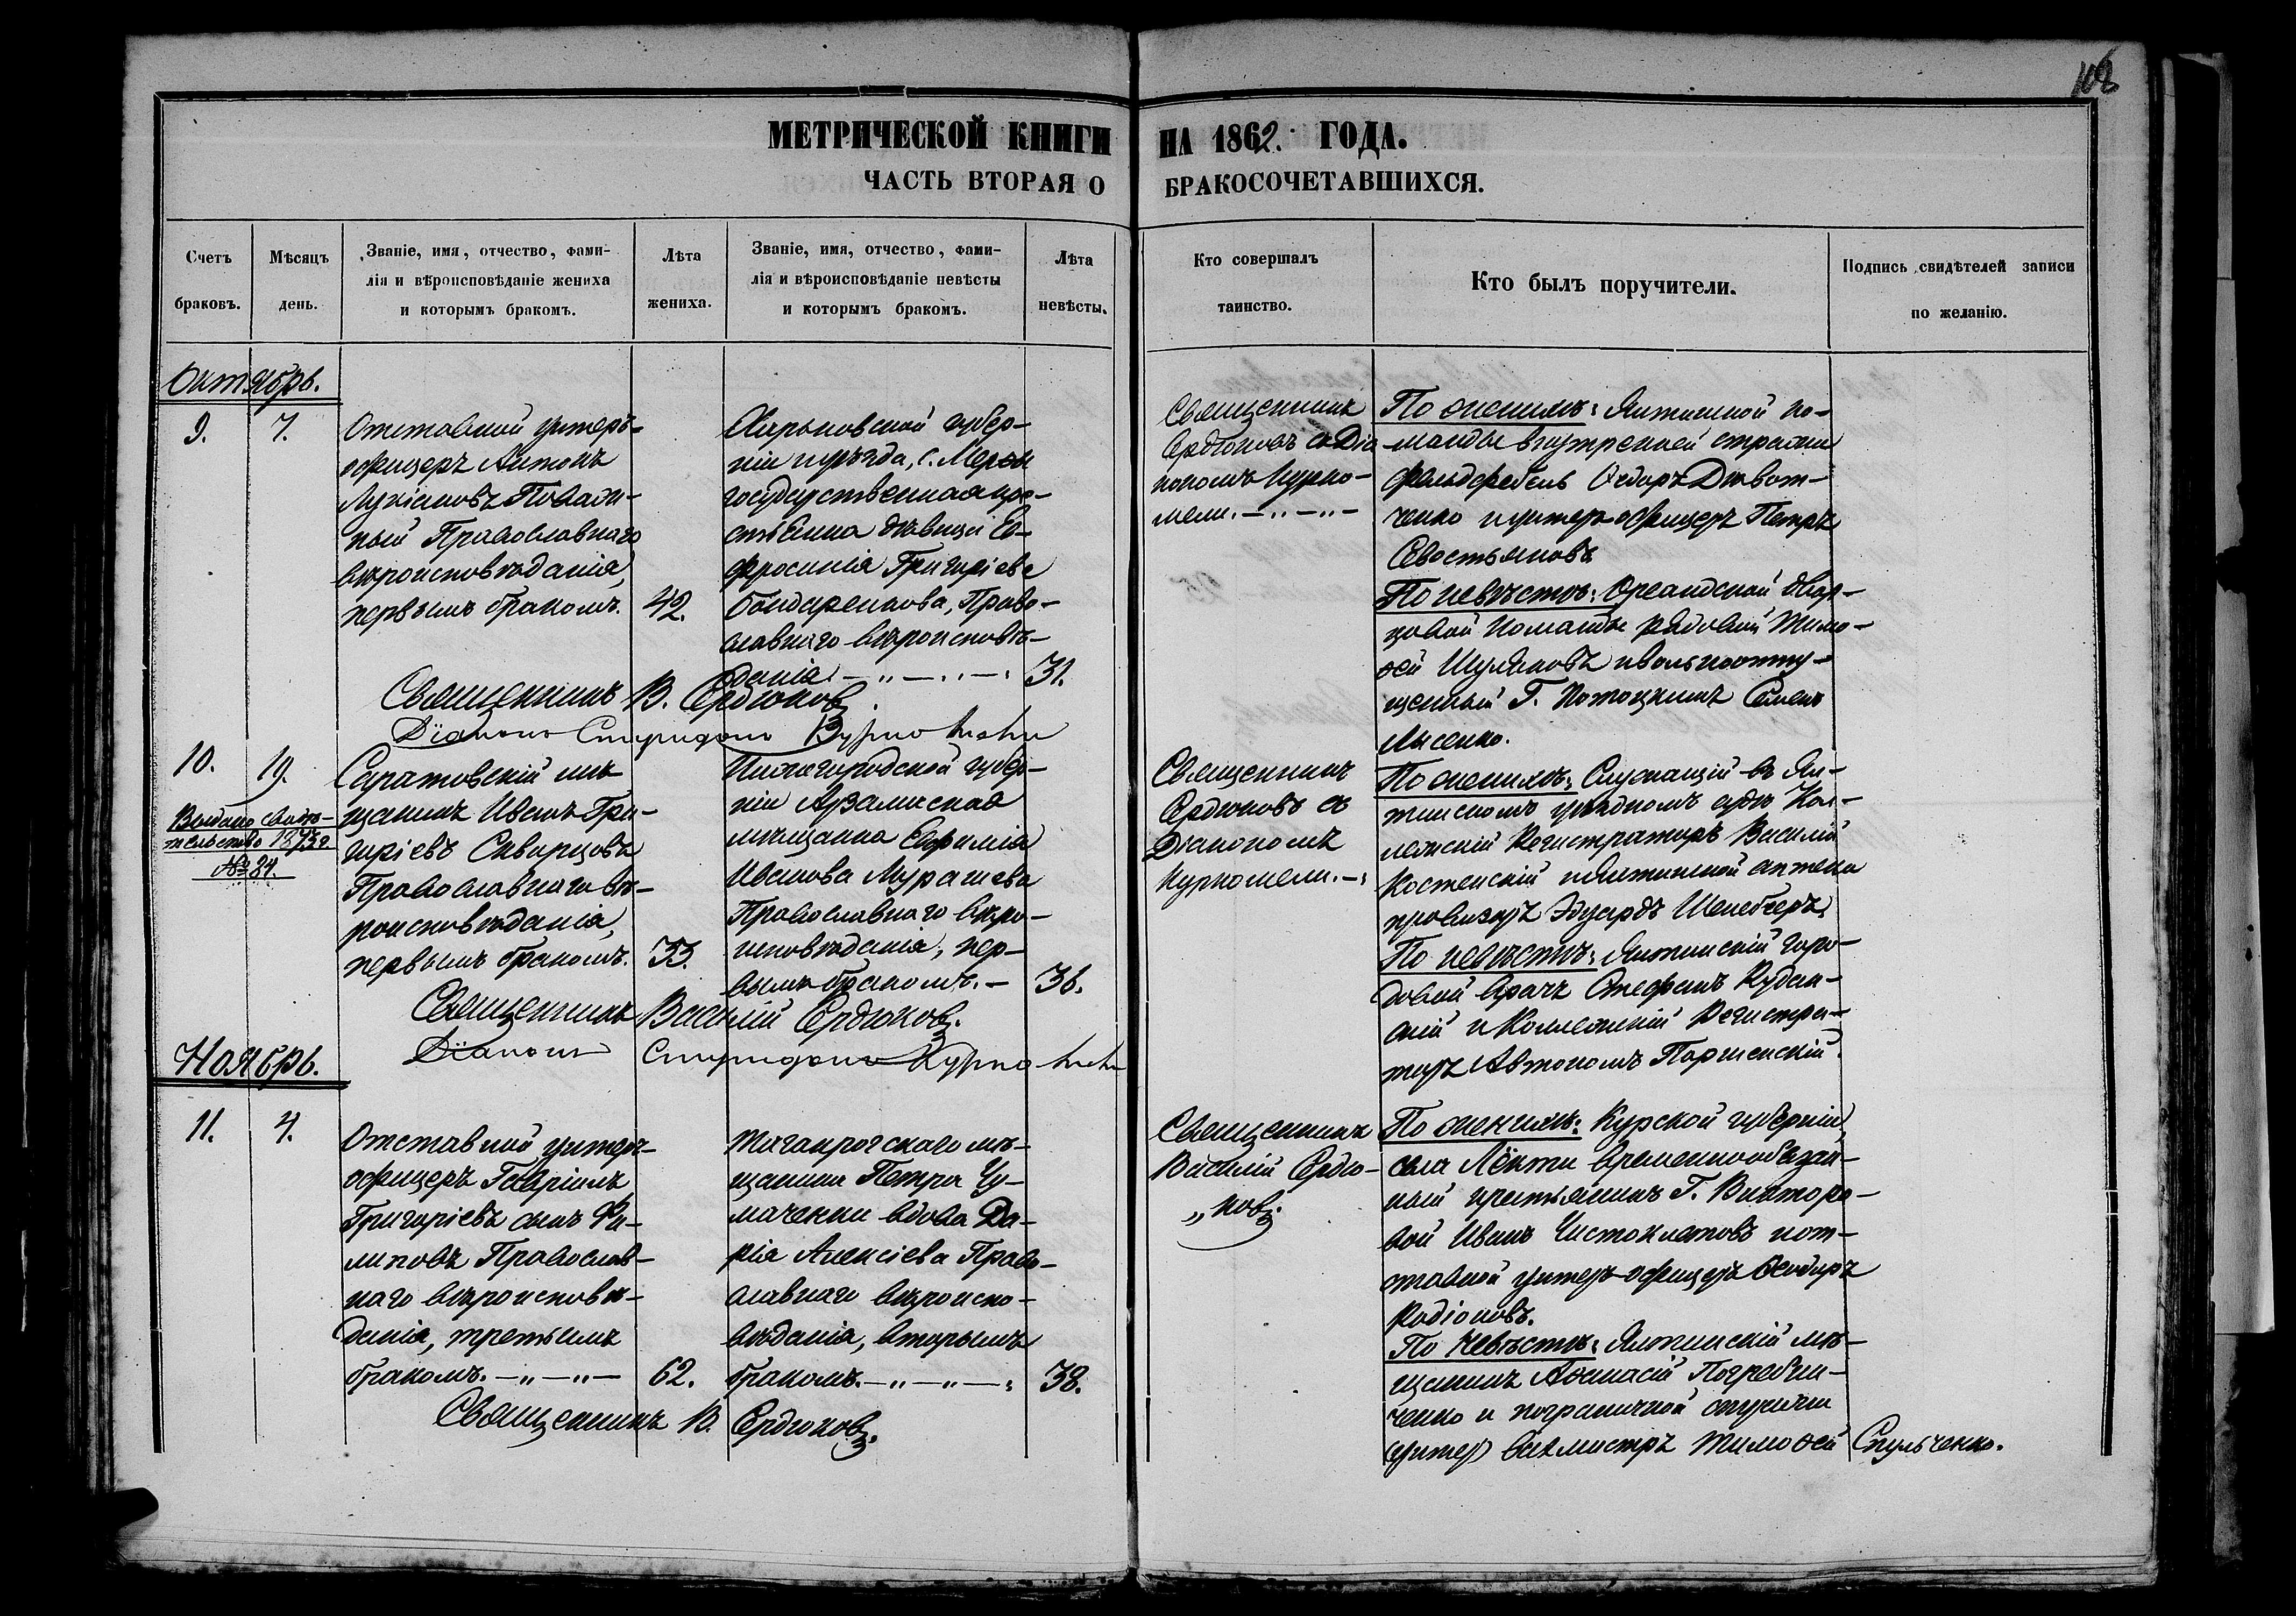 108
МЕТРИЧЕСКОЙ КНИГИ НА 1862. ГОДА.
ЧАСТЬ ВТОРАЯ О БРАКОСОЧЕТАВШИХСЯ.
Счетъ
браковъ.
Мѣсяцъ
день.
Званіе, имя, отчество, фами-
лія и вѣроисповѣданіе жениха
и которымъ бракомъ.
Лѣта
жениха.
Званіе, имя, отчество, фами-
лія и вѣроисповѣданіе невѣсты
и которымъ бракомъ.
Лѣта
невѣсты.
Кто совершалъ
таинство.
Кто былъ поручители.
Подпись свидѣтелей записи
по желанію.
Октябрь.
9.
7.
Отставной унтеръ-
офицеръ Антонъ
Лукіановъ
Православнаго
вѣроисповѣданія,
первымъ бракомъ.
42.
Харьковской губер-
ніи и уѣзда, с.
государственная кре-
стьянка дѣвица Ев-
фросинія Григоріева
Бондаренкова, Право-
славнаго вѣроисповѣ-
данія. — „ — „ —
31.
Священникъ
Сердюковъ съ Діа-
кономъ Курко-
мели. — „ — „ —
По женихѣ: Ялтинской ко-
манды внутренней стражи
фельдфебель Ѳедоръ Дѣвот-
ченко и унтеръ-офицеръ Петръ
Севостьяновъ
По невѣстѣ: Ореандской двор-
цовой команды рядовой Тимо-
ѳей Шуляковъ и вольноотпу-
щенный Г. Потоцкимъ Семенъ
Лысенко.
Священникъ В. Сердюковъ.
Діаконъ Спиридонъ Куркомели
10.
19.
Выдано свидѣ-
тельство
№ 84.
Саратовскій мѣ-
щанинъ Иванъ Гри-
горіевъ Скворцовъ
Православнаго вѣ-
роисповѣданія,
первымъ бракомъ.
33.
Нижегородской губер-
ніи Арзамаская
мѣщанка Евфимія
Иванова Мурашева
Православнаго вѣро-
исповѣданія, пер-
вымъ бракомъ. —
36.
Священникъ
Сердюковъ съ
Діакономъ
Куркомели. —
По женихѣ: Служащій въ Ял-
тинскомъ уѣздномъ судѣ Кол-
лежскій Регистраторъ Василій
Костенскій и Ялтинской аптеки
провизоръ Эдуардъ
По невѣстѣ: Ялтинскій горо-
довой врачъ Стефанъ
и Коллежскій Регистра-
торъ Автономъ
Священникъ Василій Сердюковъ.
Діаконъ Спиридонъ Куркомели
Ноябрь.
11.
4.
Отставной унтеръ-
офицеръ Гавріилъ
Григоріевъ сынъ Фи-
липовъ Православ-
наго вѣроисповѣ-
данія, третьимъ
бракомъ. — „ — „ —
62.
Таганрогскаго мѣ-
щанина Петра Чу-
маченки вдова Да-
рія Алексіева Право-
славнаго вѣроиспо-
вѣданія, вторымъ
бракомъ. — „ — „ —
38.
Священникъ
Василій Сердю-
„ковъ.
По женихѣ: Курской губерніи,
села Лѣкти временнообязан-
ный крестьянинъ Г. Викторо-
вой Иванъ Чистоклетовъ и от-
ставной унтеръ-офицеръ Ѳеодоръ
Родіоновъ.
По невѣстѣ: Ялтинскій мѣ-
щанинъ Аѳанасій Погребни-
ченко и пограничной стражи
(унтер) вахмистръ Тимоѳей Скульченко.
Священникъ В. Сердюковъ.